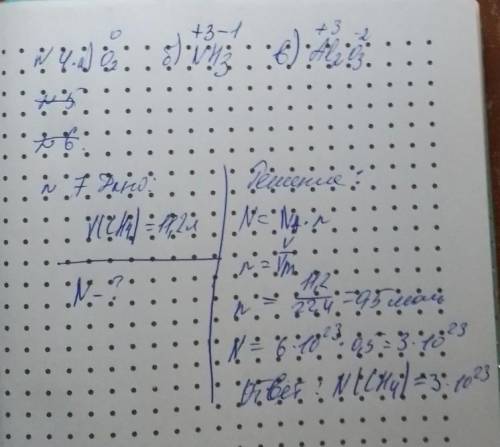 0 +3 -1 +3 -2
N 4. а) O2 б) NH3 в) Al2O3
N 5
N 6.
N 7 Дано:
V(CH4) = 11,2л
N - ?
Решение:
N = NA · n
n = V/Vm
n = 11,2/22,4 = 0,5 моль
N = 6 · 10²³ · 0,5 = 3 · 10²³
Ответ: N(CH4) = 3 · 10²³